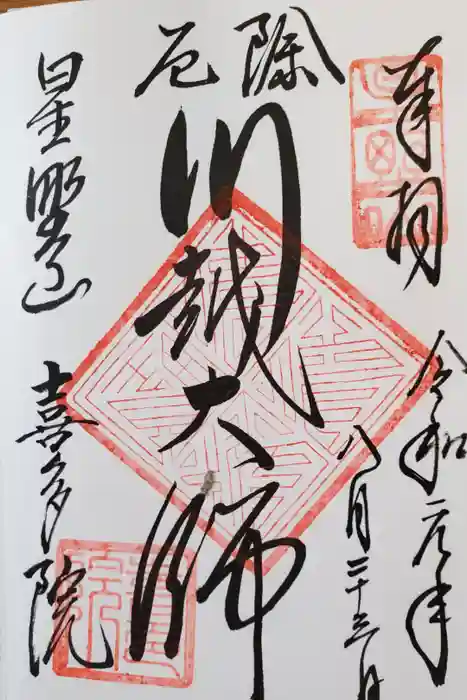 奉拝
令和元年
八月二十三日
厄除
川越大師
星野山
喜多院